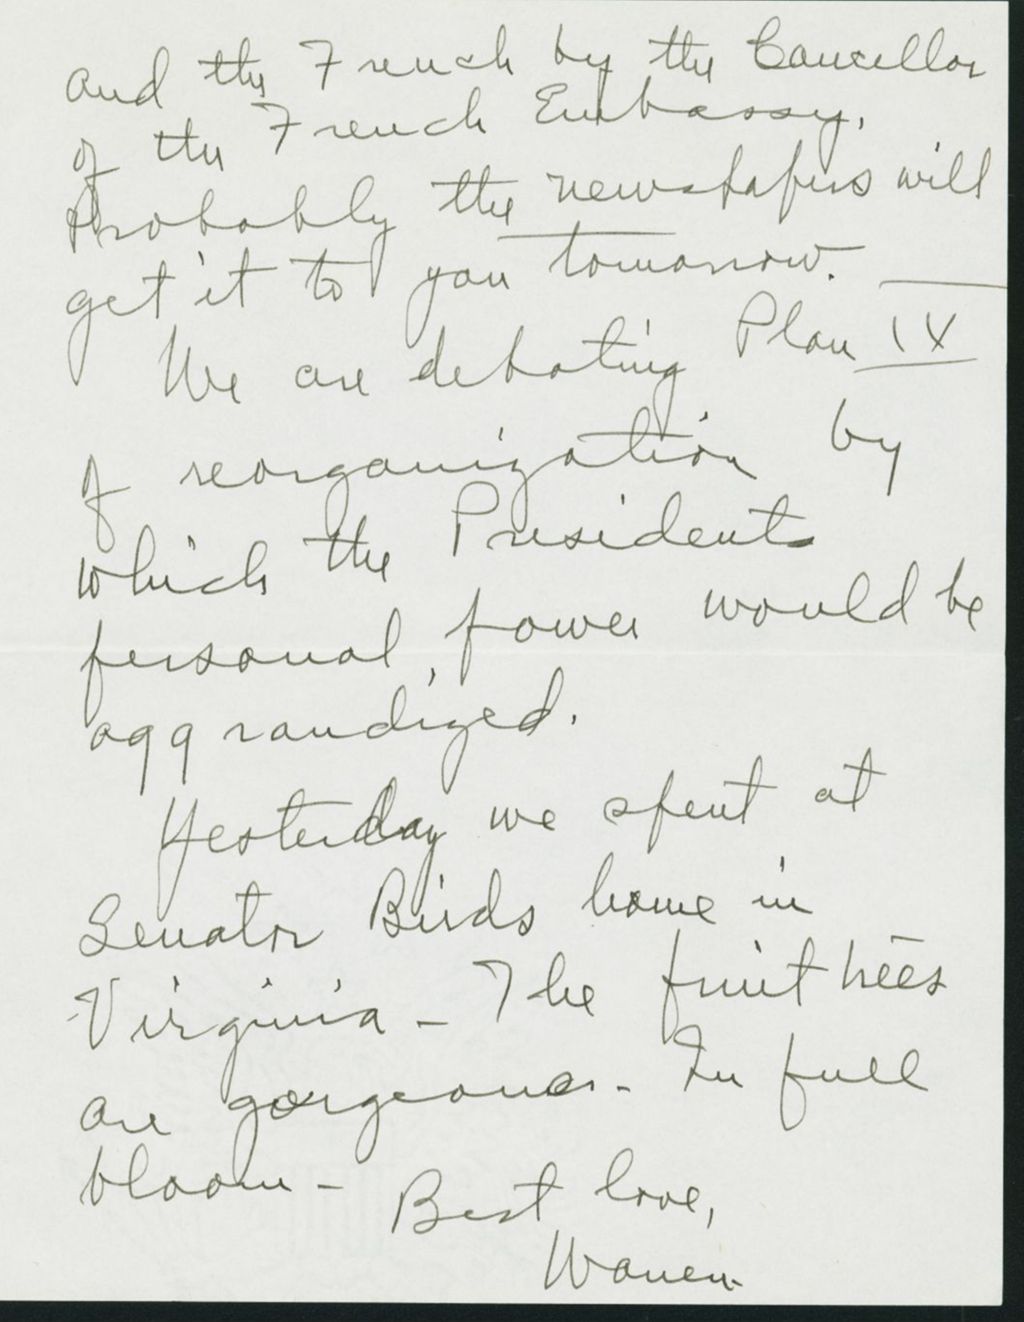 and the French by the Cancellor
of the French Embassy.
Probably the newspapers will
get it to you tomorrow.
We are debating Plan IV
of reorganization by
which the Presidents
personal, power would be
aggrandized.
Yesterday we spent at
Senator Birds home in
Virginia - The fruit trees
are gorgeous - In full
bloom -
Best love,
Warren